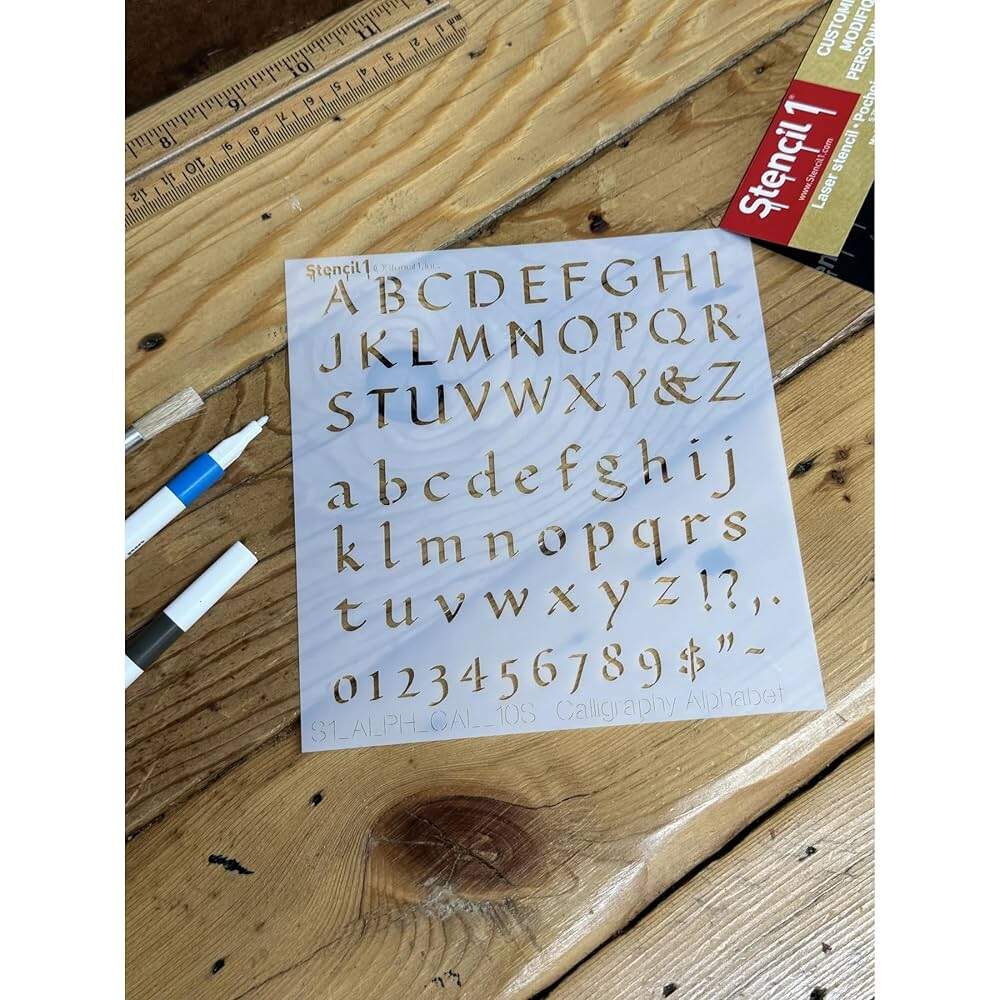 8 9 10 11
12 11 10 9 8 7 6 5 4 3 2 1
CUSTOMI
MODIFIC
PERSON
Stencil 1®
www.Stencil1.com
Laser stencil • Pochoi
Stencil1 ©Stencil1, Inc.
A B C D E F G H I
J K L M N O P Q R
S T U V W X Y & Z
a b c d e f g h i j
k l m n o p q r s
t u v w x y z ! ? , .
0 1 2 3 4 5 6 7 8 9 $ " ~
S1_ALPH_CAL_10S Calligraphy Alphabet